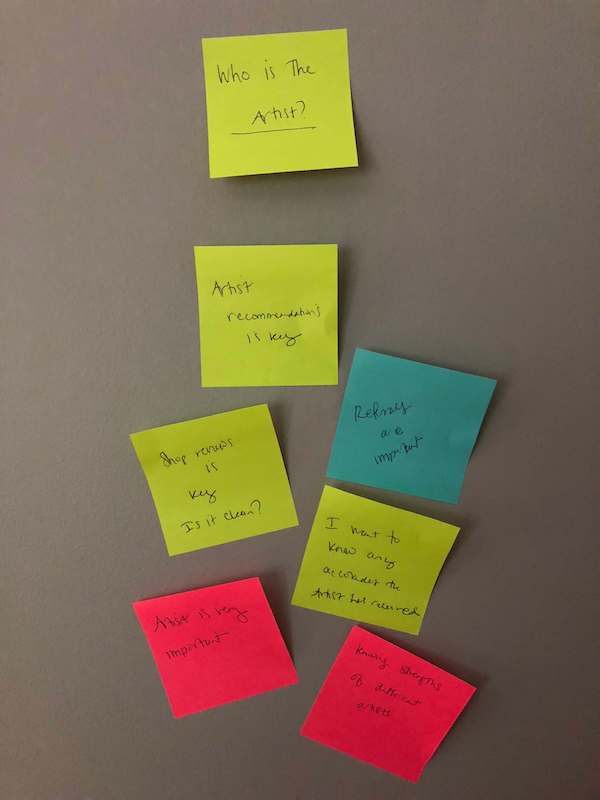 Who is The
Artist?
Artist
recommendations
is key
Referrals
are
important
Shop reviews
is
key
Is it clean?
I want to
know any
accolades the
Artist has received
Artist is very
important
Knowing strengths
of different
artists